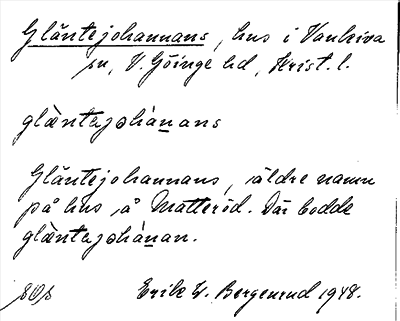 Gläntejohannans, hus i Vankiva
sn, V. Göinge hd, Krist. l.
glæntajohànans
Gläntejohannans, äldre namn
på hus å Matteröd. Där bodde
glæntajohànan.
Erik W. Bergenrud 1948.